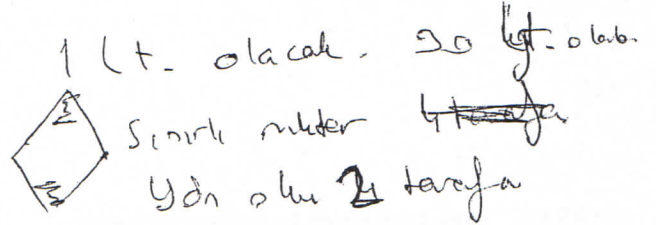 1 Lt. olacak. 30 kgt. olab.
Sınırlı miktar
Yön oku 2 tarafa